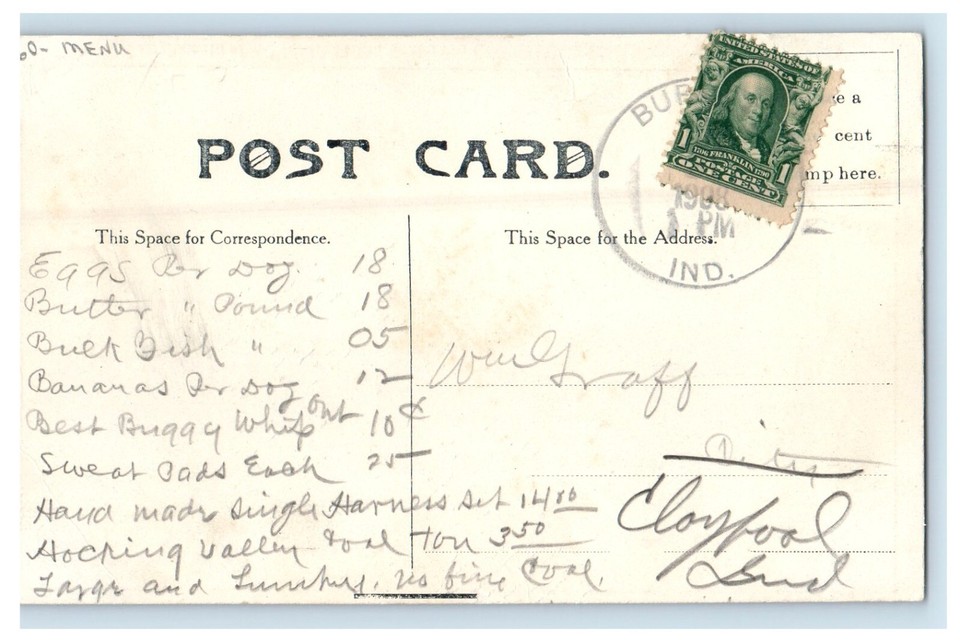 60- MENU
POST CARD.
UNITED STATES OF
AMERICA
1 1
1706 FRANKLIN 1790
POSTAGE
ONE CENT
BUR
1908
PM
IND.
e a
cent
mp here.
This Space for Correspondence.
Eggs Per Doz. 18
Butter " Pound 18
Bulk Fish " 05
Bananas Per Doz 12
Best Buggy Whip out 10¢
Sweat Pads Each 25
Hand made single Harness set 14 00
Hocking Valley Coal ton 3 50
Large and Lumpy. no fine Coal.
This Space for the Address.
Wm Graff
City
Claypool
Ind